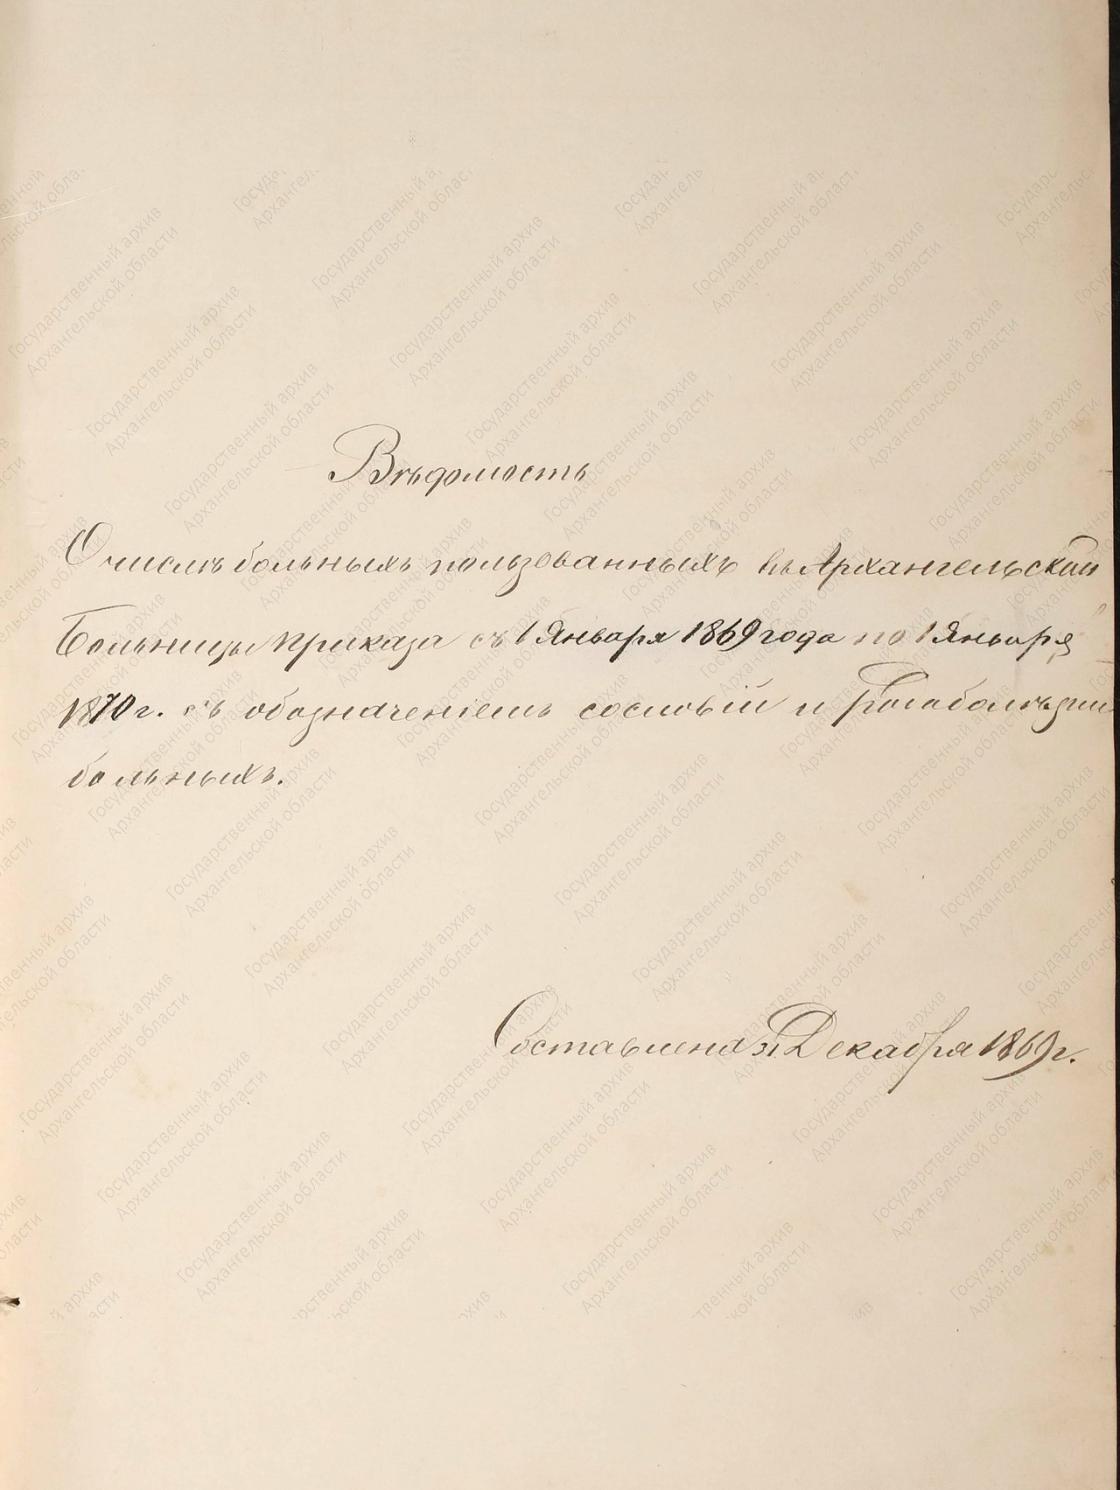 Вѣдомость
О числѣ больныхъ пользованныхъ въ Архангельской
Больницы приказа съ 1 Января 1869 года по 1 Января
1870 г. съ обозначеніемъ сословій и рода болѣзни
больныхъ.
Составлена 31 Декабря 1869 г.
Государственный архив
Архангельской области